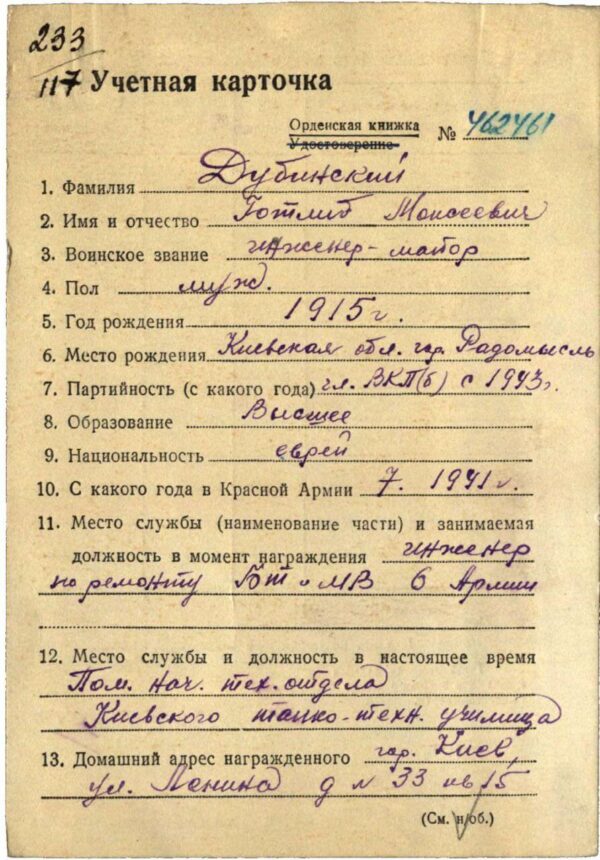 233
117 Учетная карточка
Орденская книжка
Удостоверение № 462461
1. Фамилия Дубинский
2. Имя и отчество Готлиб Моисеевич
3. Воинское звание инженер-майор
4. Пол муж.
5. Год рождения 1915 г.
6. Место рождения Киевская обл. гор. Радомысль
7. Партийность (с какого года) чл. ВКП(б) с 1943 г.
8. Образование Высшее
9. Национальность еврей
10. С какого года в Красной Армии 7. 1941 г.
11. Место службы (наименование части) и занимаемая
должность в момент награждения инженер
по ремонту БТ и МВ 6 Армии
12. Место службы и должность в настоящее время
Пом. нач. тех. отдела
Киевского танко-техн. училища
13. Домашний адрес награжденного гор. Киев,
ул. Ленина д № 33 кв 15
(См. н/об.)